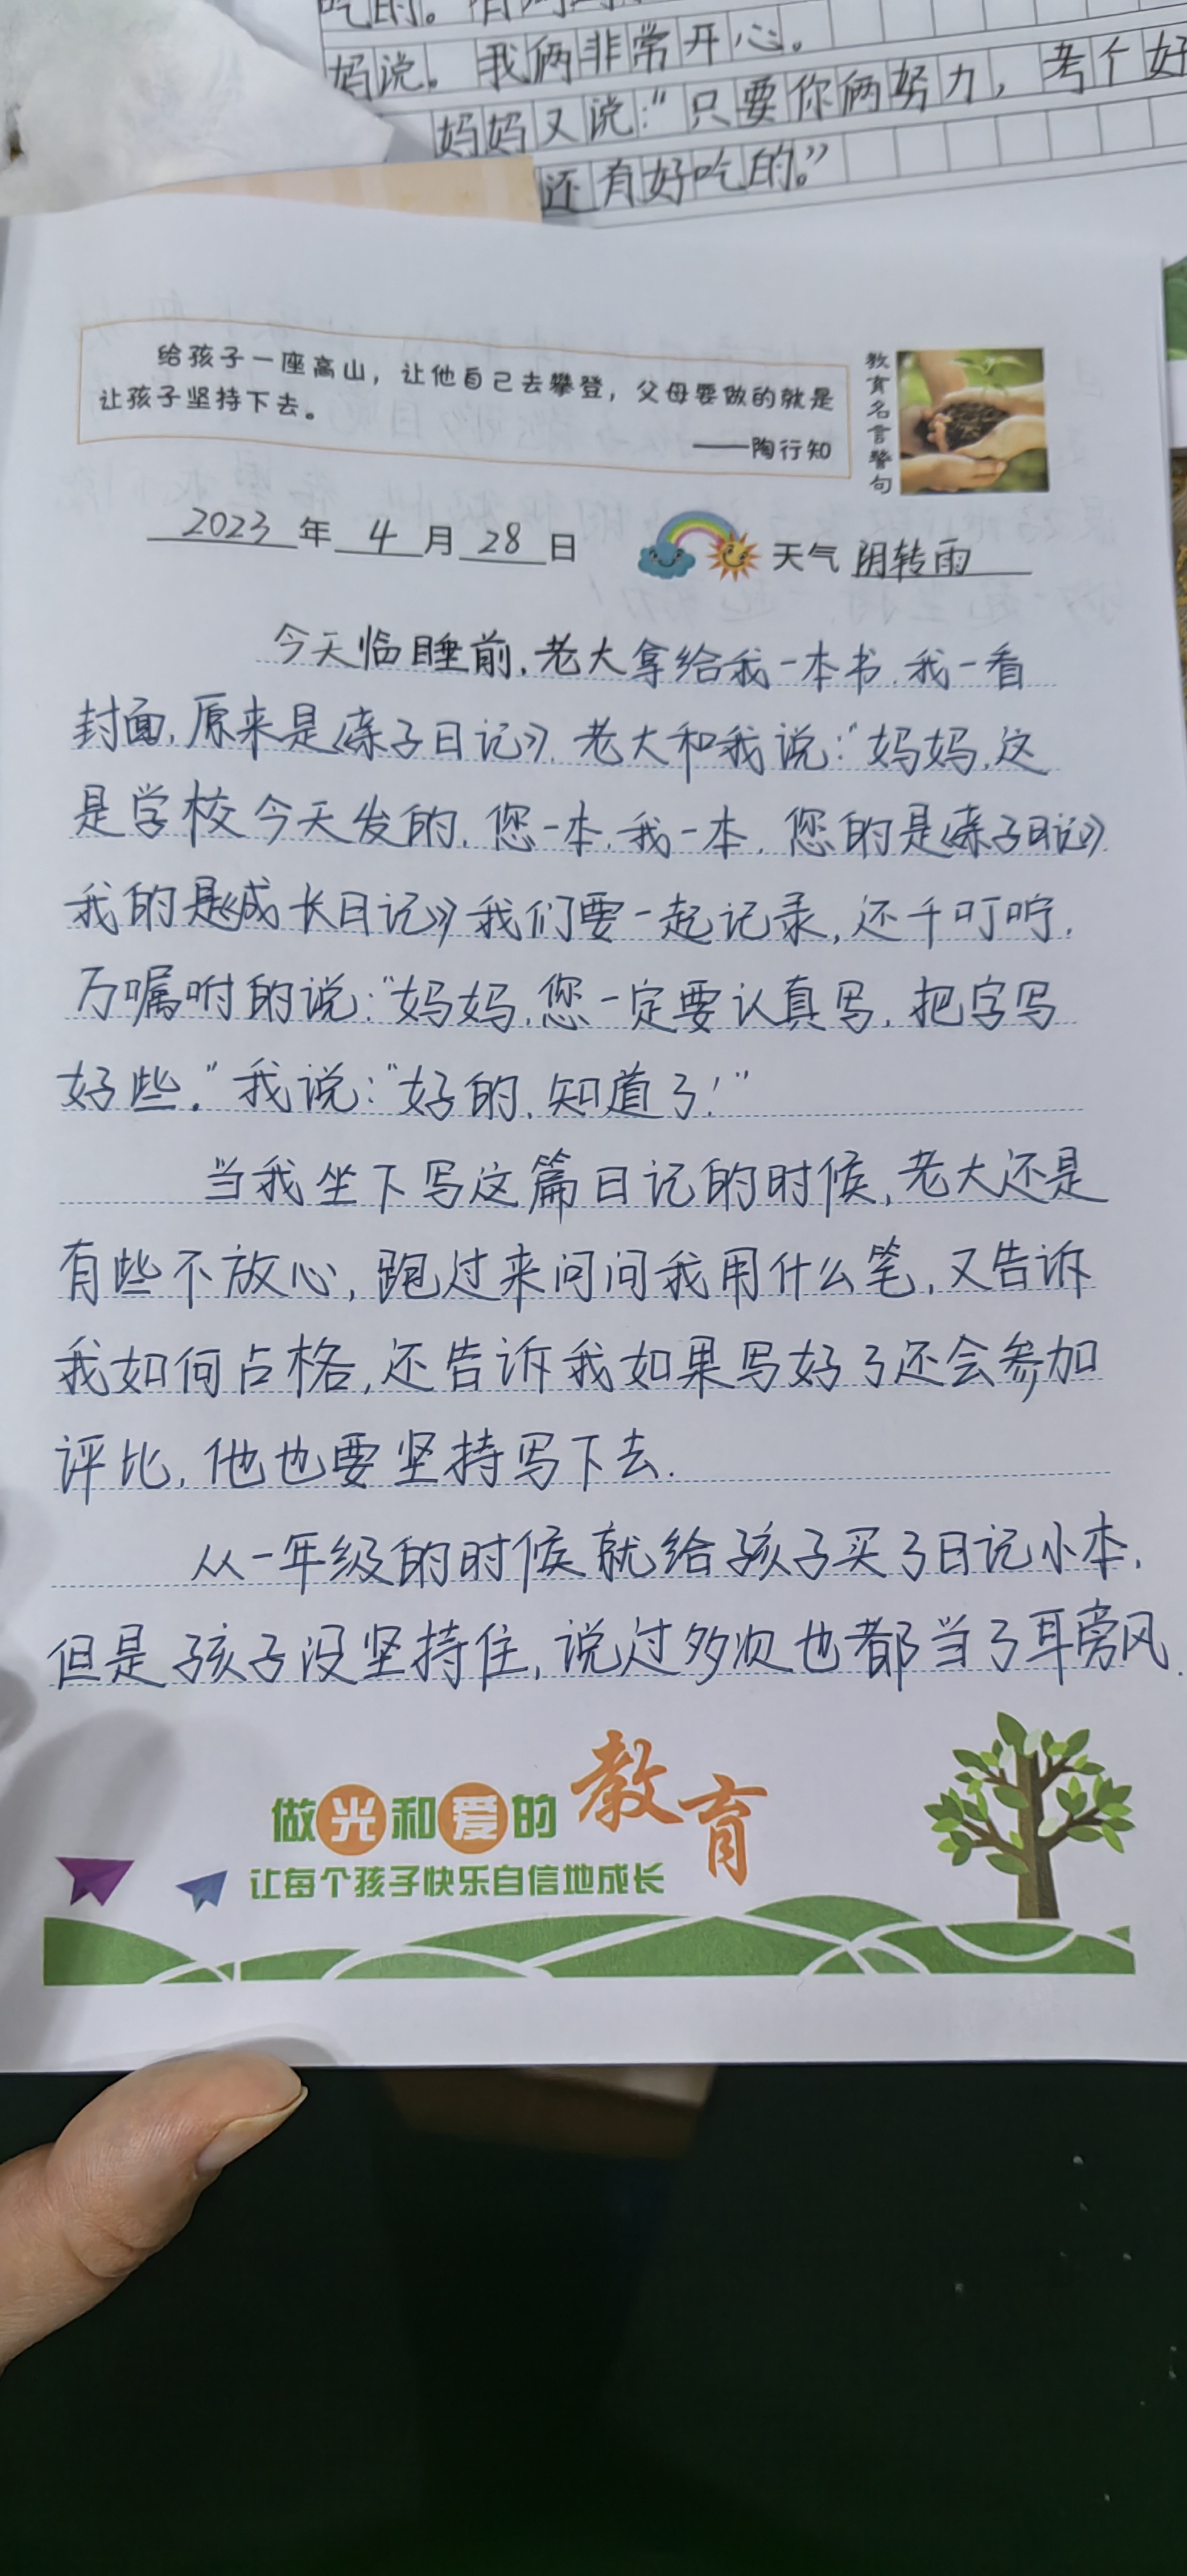 妈说。我俩非常开心。
妈妈又说:“只要你俩努力,考个好
还有好吃的。”
给孩子一座高山,让他自己去攀登,父母要做的就是
让孩子坚持下去。
——陶行知
教育名言警句
2023年4月28日 天气 阴转雨
今天临睡前,老大拿给我一本书,我一看
封面,原来是《亲子日记》,老大和我说:“妈妈,这
是学校今天发的,您一本,我一本,您的是《亲子日记》
我的是《成长日记》我们要一起记录,还千叮咛,
万嘱咐的说:“妈妈,您一定要认真写,把字写
好些.”我说:“好的,知道了!”
当我坐下写这篇日记的时候,老大还是
有些不放心,跑过来问问我用什么笔,又告诉
我如何占格,还告诉我如果写好了还会参加
评比,他也要坚持写下去.
从一年级的时候就给孩子买了日记小本,
但是孩子没坚持住,说过多次也都当了耳旁风.
做光和爱的教育
让每个孩子快乐自信地成长